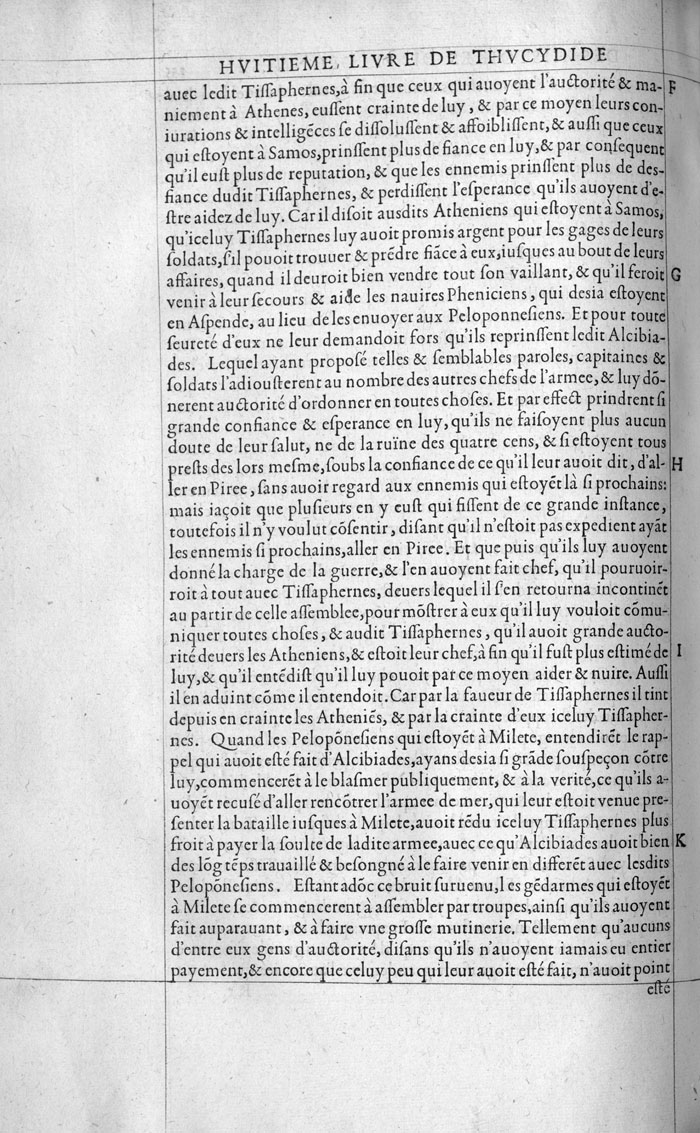 HVITIEME LIVRE DE THVCYDIDE
auec ledit Tiſſaphernes,à fin que ceux qui auoyent l'auctorité & ma- F
niement à Athenes, euſſent crainte de luy, & par ce moyen leurs con-
iurations & intelligẽces ſe diſſoluſſent & affoibliſſent, & auſſi que ceux
qui eſtoyent à Samos, prinſſent plus de fiance en luy,& par conſequent
qu'il euſt plus de reputation, & que les ennemis prinſſent plus de deſ-
fiance dudit Tiſſaphernes, & perdiſſent l'eſperance qu'ils auoyent d'e-
ſtre aidez de luy. Car il diſoit auſdits Atheniens qui eſtoyent à Samos,
qu'iceluy Tiſſaphernes luy auoit promis argent pour les gages de leurs
ſoldats, ſ'il pouoit trouuer & prẽdre fiãce à eux,iuſques au bout de leurs
affaires, quand il deuroit bien vendre tout ſon vaillant, & qu'il feroit G
venir à leur ſecours & aide les nauires Pheniciens, qui deſia eſtoyent
en Aſpende, au lieu de les enuoyer aux Peloponneſiens. Et pour toute
ſeureté d'eux ne leur demandoit fors qu'ils reprinſſent ledit Alcibia-
des. Lequel ayant propoſé telles & ſemblables paroles, capitaines &
ſoldats l'adiouſterent au nombre des autres chefs de l'armee, & luy dõ-
nerent auctorité d'ordonner en toutes choſes. Et par effect prindrent ſi
grande confiance & eſperance en luy, qu'ils ne faiſoyent plus aucun
doute de leur ſalut, ne de la ruïne des quatre cens, & ſi eſtoyent tous
preſts des lors meſme, ſoubs la confiance de ce qu'il leur auoit dit, d'al- H
ler en Piree, ſans auoir regard aux ennemis qui eſtoyẽt là ſi prochains:
mais iaçoit que pluſieurs en y euſt qui fiſſent de ce grande inſtance,
toutefois il n'y voulut cõſentir, diſant qu'il n'eſtoit pas expedient ayãt
les ennemis ſi prochains,aller en Piree. Et que puis qu'ils luy auoyent
donné la charge de la guerre,& l'en auoyent fait chef, qu'il pouruoir-
roit à tout auec Tiſſaphernes, deuers lequel il ſ'en retourna incontinẽt
au partir de celle aſſemblee,pour mõſtrer à eux qu'il luy vouloit cõmu-
niquer toutes choſes, & audit Tiſſaphernes, qu'il auoit grande aucto-
rité deuers les Atheniens,& eſtoit leur chef,à fin qu'il fuſt plus eſtimé de I
luy,& qu'il entẽdiſt qu'il luy pouoit par ce moyen aider & nuire. Auſſi
il en aduint cõme il entendoit. Car par la faueur de Tiſſaphernes il tint
depuis en crainte les Atheniẽs, & par la crainte d'eux iceluy Tiſſapher-
nes. Quand les Pelopõneſiens qui eſtoyẽt à Milete, entendirẽt le rap-
pel qui auoit eſté fait d'Alcibiades,ayans deſia ſi grãde ſouſpeçon cõtre
luy,commencerẽt à le blaſmer publiquement, & à la verité,ce qu'ils a-
uoyẽt recuſé d'aller rencõtrer l'armee de mer, qui leur eſtoit venue pre-
ſenter la bataille iuſques à Milete,auoit rẽdu iceluy Tiſſaphernes plus
froit à payer la ſoulte de ladite armee,auec ce qu'Alcibiades auoit bien K
des lõg tẽps trauaillé & beſongné à le faire venir en differẽt auec leſdits
Pelopõneſiens. Eſtant adõc ce bruit ſuruenu,les gẽdarmes qui eſtoyẽt
à Milete ſe commencerent à aſſembler par troupes,ainſi qu'ils auoyent
fait auparauant, & à faire vne groſſe mutinerie. Tellement qu'aucuns
d'entre eux gens d'auctorité, diſans qu'ils n'auoyent iamais eu entier
payement,& encore que celuy peu qui leur auoit eſté fait, n'auoit point
eſté